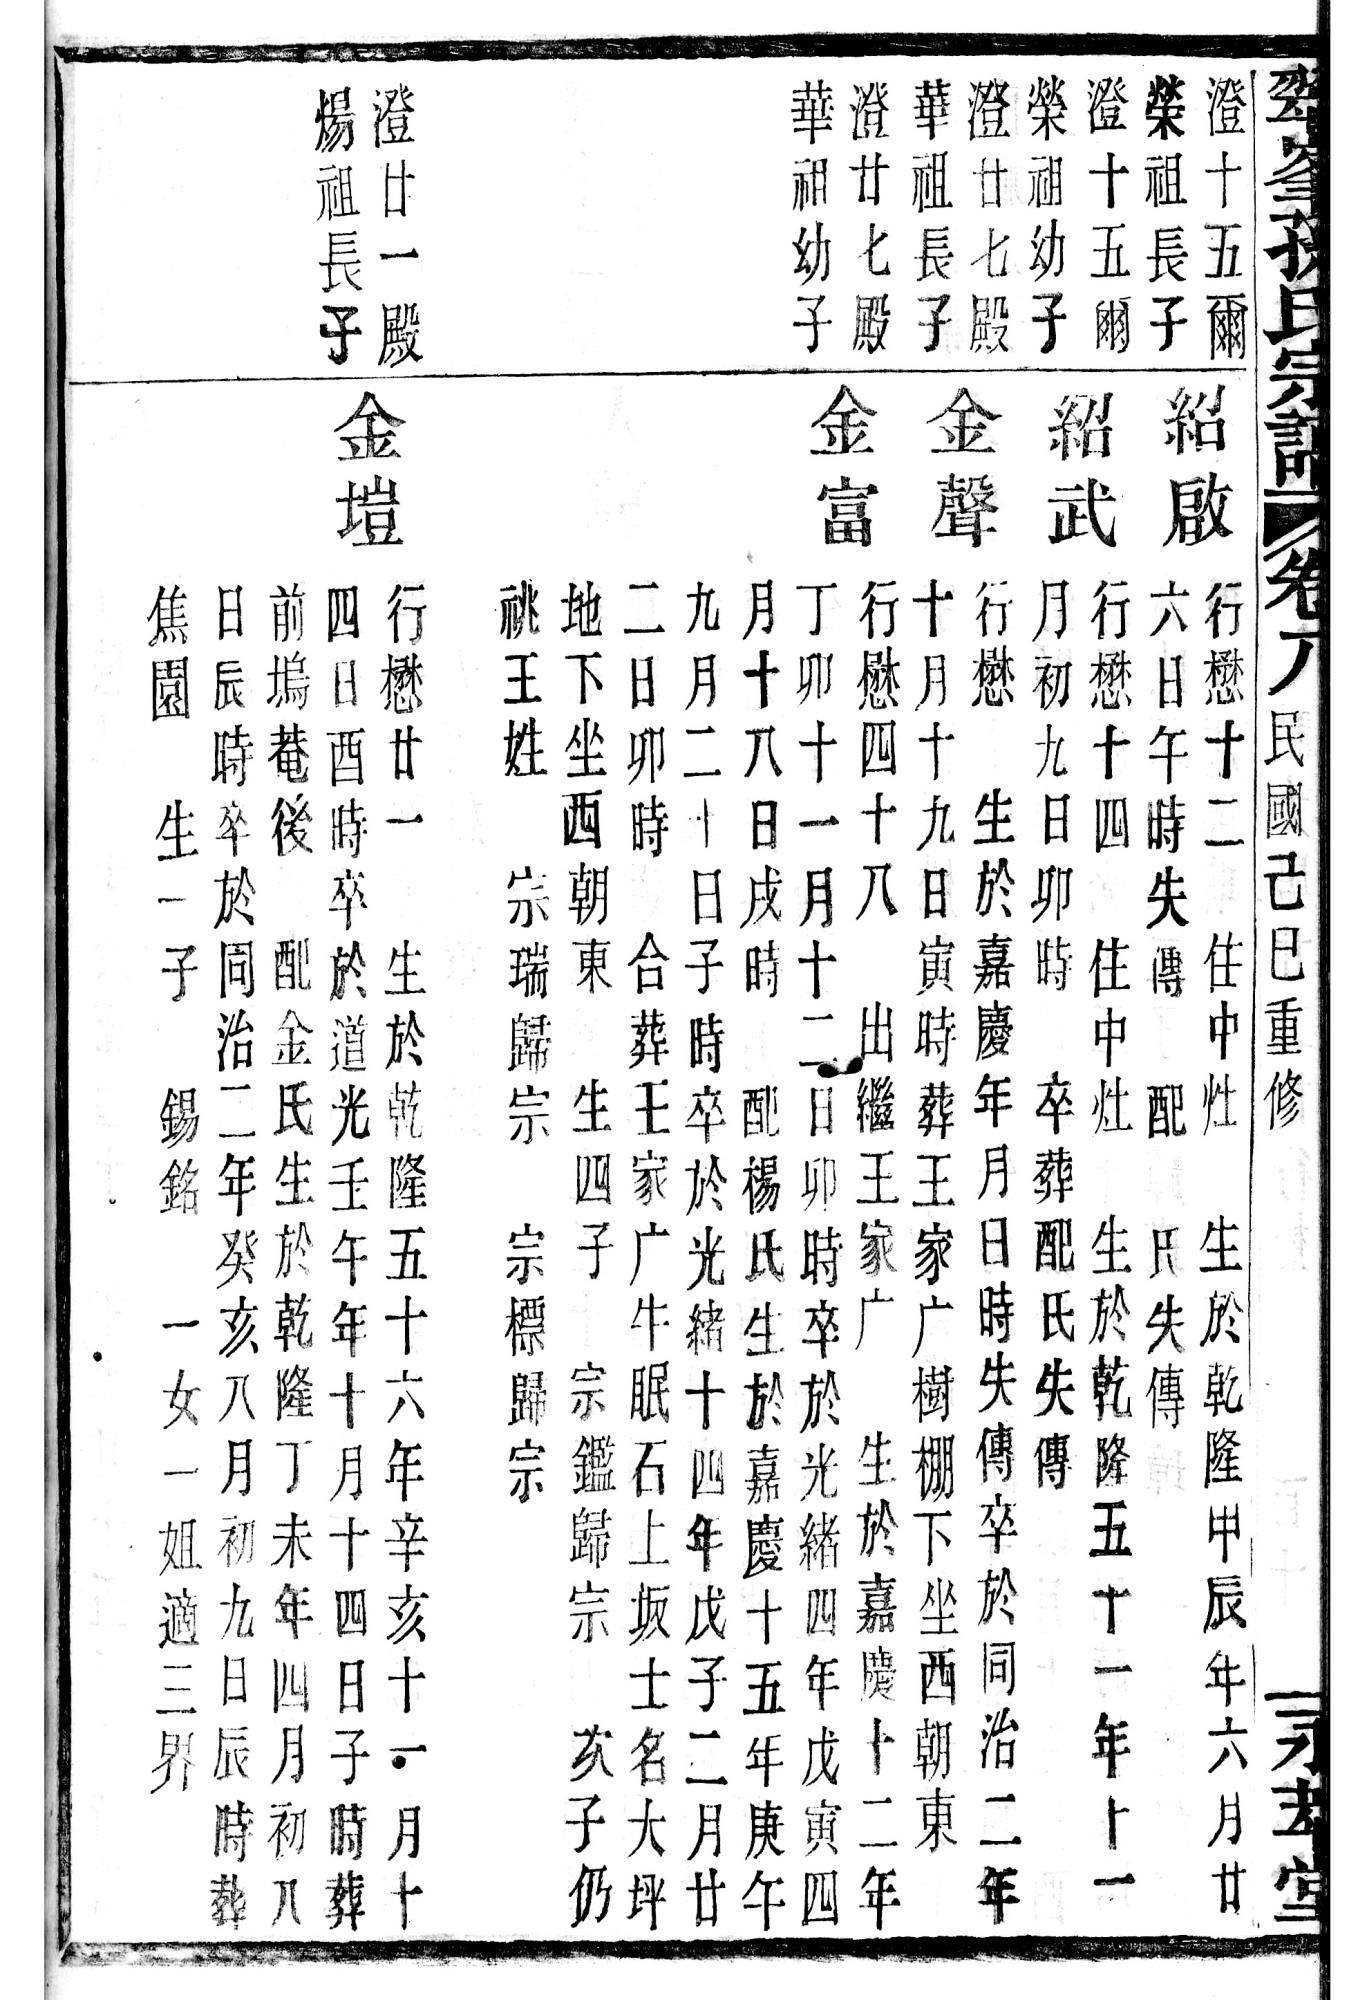 翠峯孫氏宗譜 卷八 民國己巳重修 永孝堂
澄十五爾
榮祖長子
澄十五爾
榮祖幼子
澄廿七殿
華祖長子
澄廿七殿
華祖幼子
澄廿一殿
煬祖長子
紹啟
行懋十二 住中灶 生於乾隆甲辰年六月廿
六日午時失傳 配 氏失傳
紹武
行懋十四 住中灶 生於乾隆五十一年十一
月初九日卯時 卒葬配氏失傳
金聲
行懋 生於嘉慶年月日時失傳卒於同治二年
十月十九日寅時葬王家广樹棚下坐西朝東
金富
行懋四十八 出繼王家广 生於嘉慶十二年
丁卯十一月十二日卯時卒於光緒四年戊寅四
月十八日戌時 配楊氏生於嘉慶十五年庚午
九月二十日子時卒於光緒十四年戊子二月廿
二日卯時 合葬王家广牛眠石上坂土名大坪
地下坐西朝東 生四子 宗鑑歸宗 次子仍
祧王姓 宗瑞歸宗 宗標歸宗
金塏
行懋廿一 生於乾隆五十六年辛亥十一月十
四日酉時卒於道光壬午年十月十四日子時葬
前塢菴後 配金氏生於乾隆丁未年四月初八
日辰時卒於同治二年癸亥八月初九日辰時葬
焦園 生一子 錫銘 一女一姐適三界